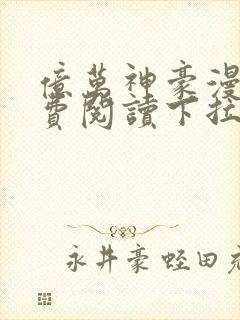 億萬神豪漫
費閱讀下拉
永井豪 蛭田充